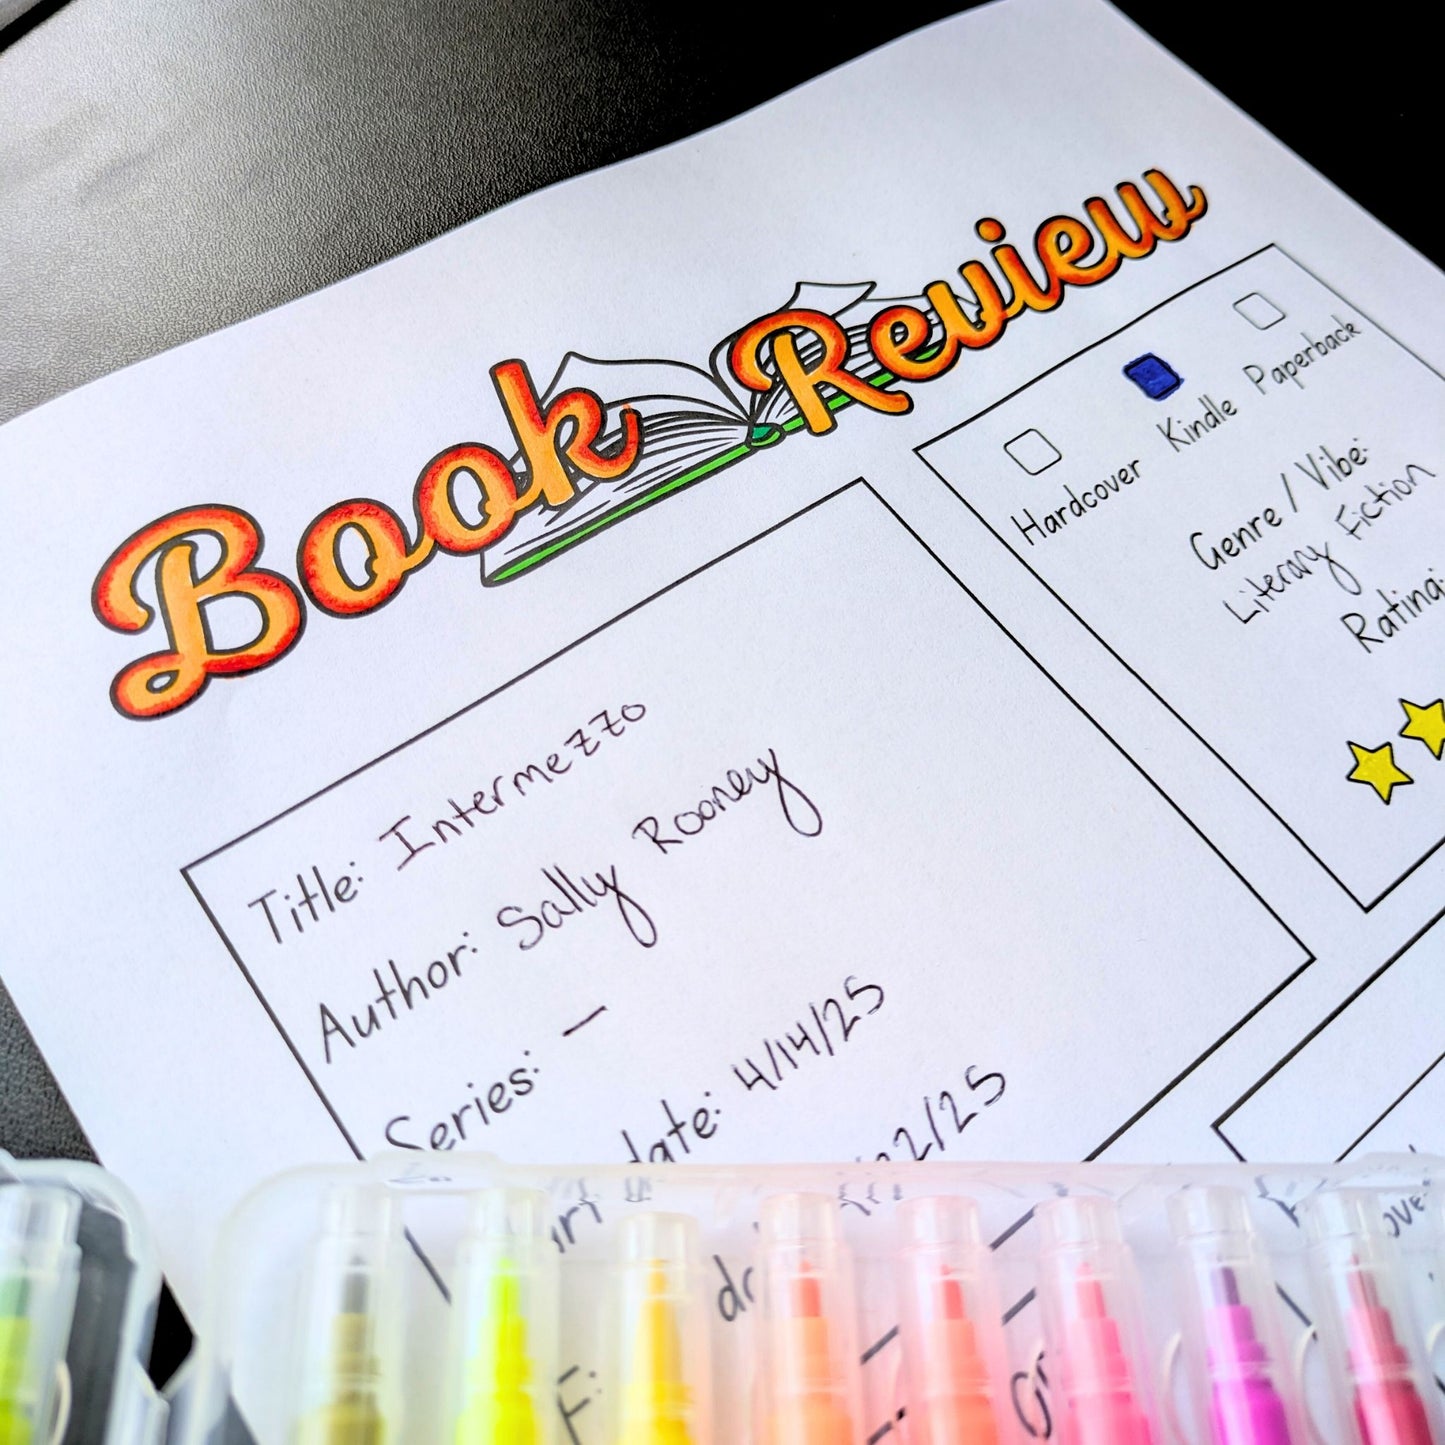 Book Review
Title: Intermezzo
Author: Sally Rooney
Series: —
date: 4/14/25
2/25
Hardcover
Kindle
Paperback
Genre / Vibe:
Literary Fiction
Rating:
F: